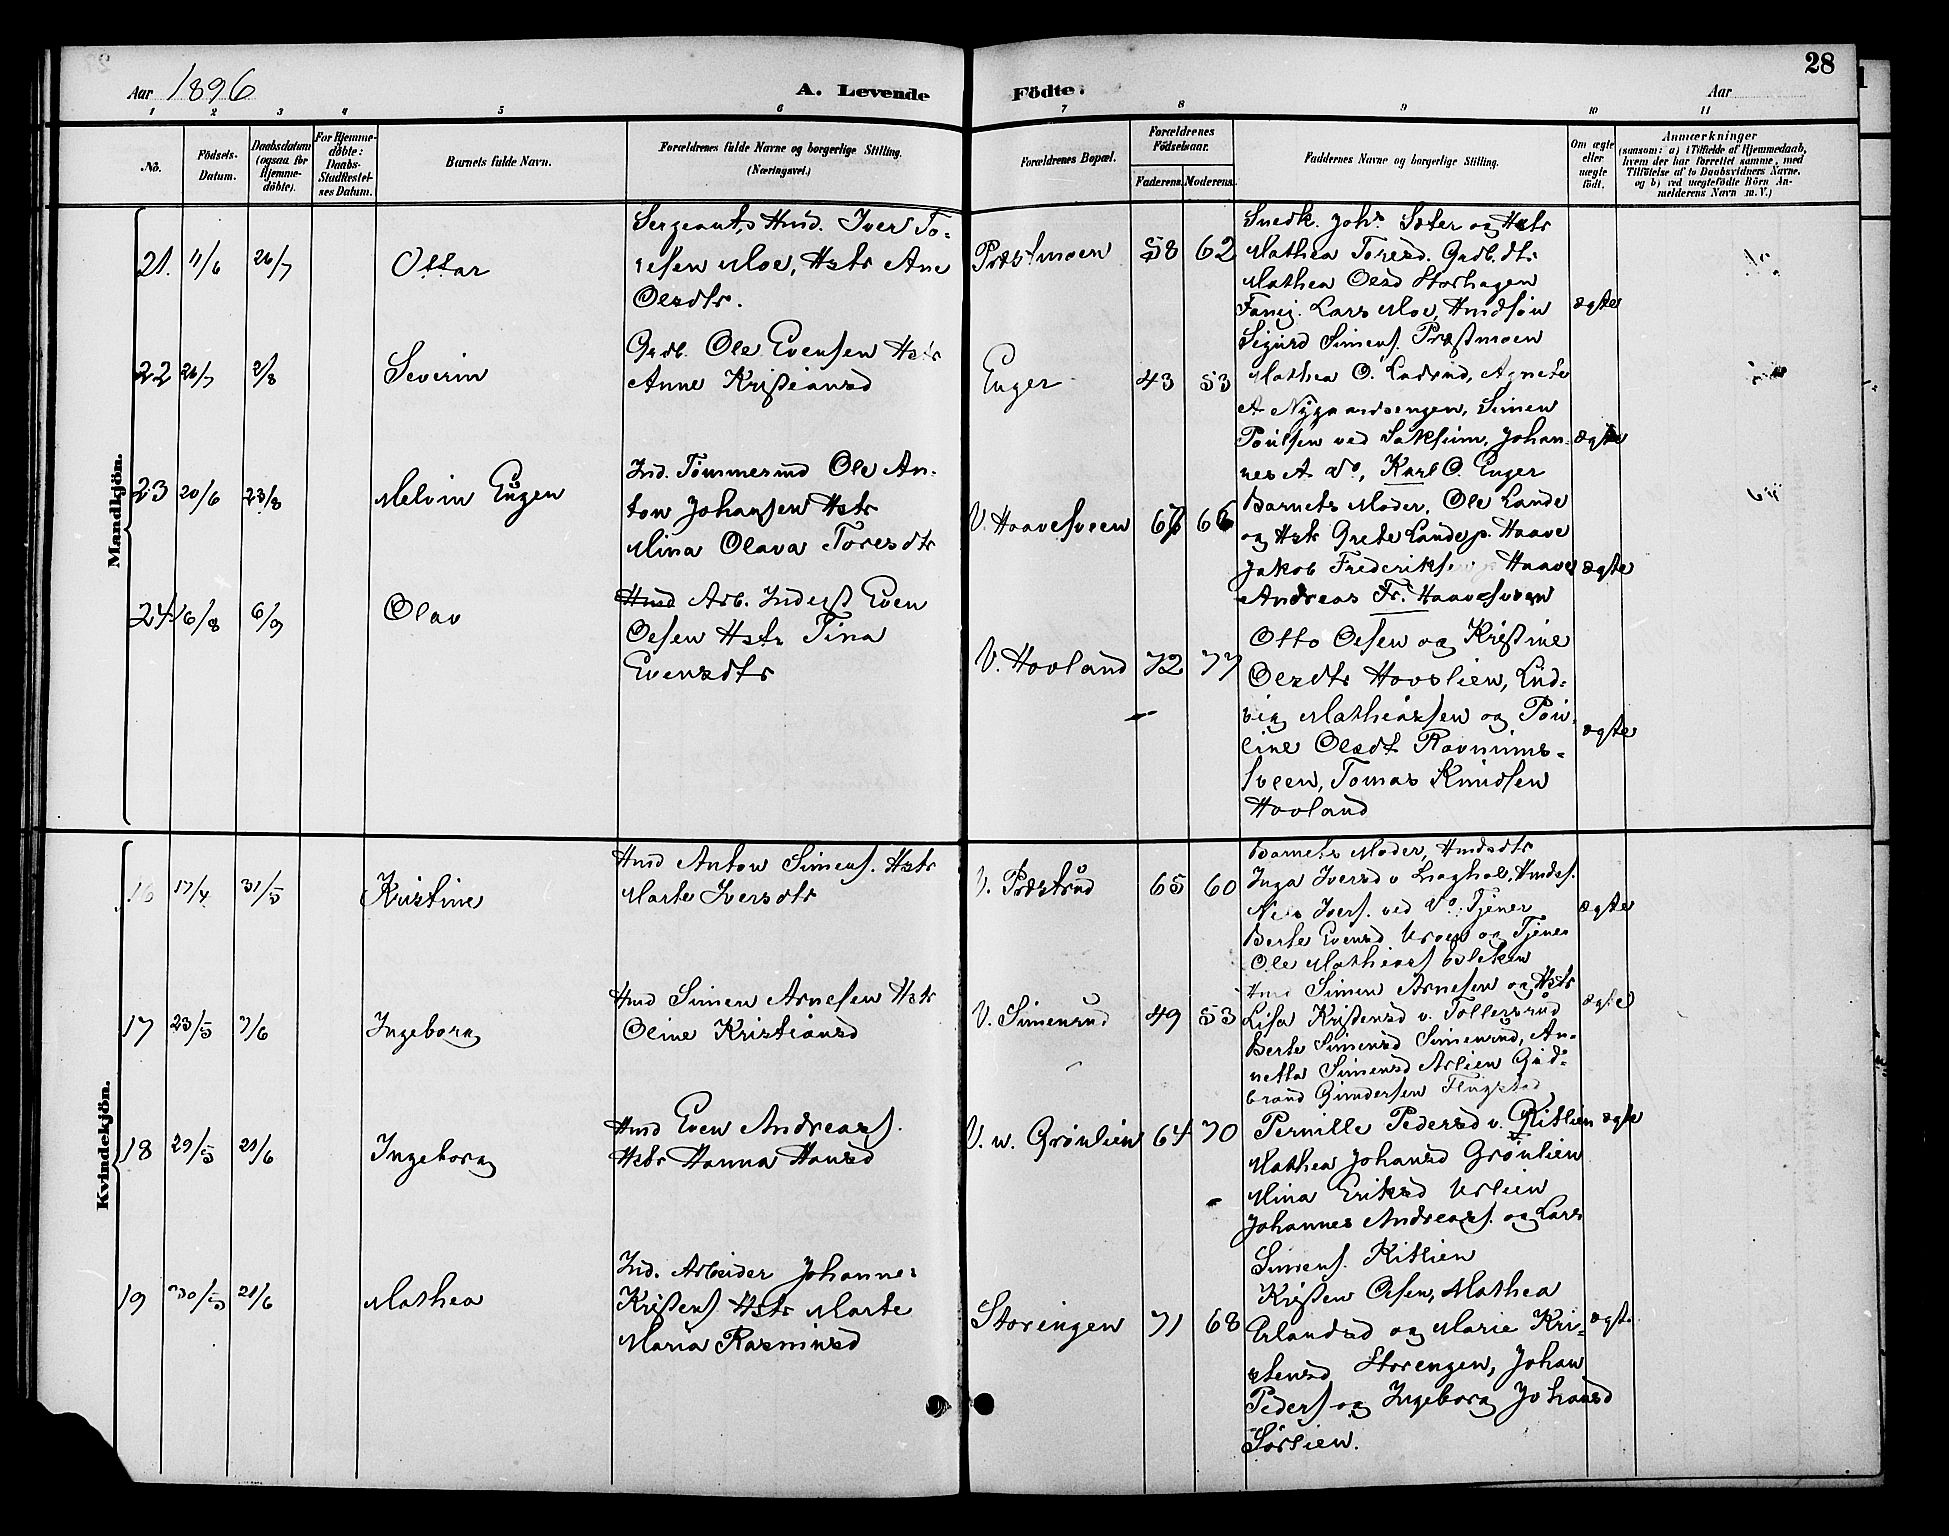 28
Aar 1896
A. Levende
Födte.
Aar
1 2 3 4 5 6 7 8 9 10 11
No.
Födsels-
Datum.
Daabsdatum
(ogsaa for
Hjemme-
döbte).
For Hjemme-
döbte:
Daabs-
Stadfæstel-
ses Datum.
Barnets fulde Navn.
Forældrenes fulde Navne og borgerlige Stilling.
(Næringsvei.)
Forældrenes Bopæl.
Forældrenes
Födselsaar.
Faderens. Moderens.
Faddernes Navne og borgerlige Stilling.
Om ægte
eller
uægte
födt.
Anmærkninger
(saasom: a) i Tilfælde af Hjemmedaab,
hvem der har forrettet samme, med
Tilföielse af to Daabsvidners Navne,
og b) ved uægtefödte Börn An-
melderens Navn m. V.)
Mandkjön.
21. 11/6 26/7 Ottar
Sergeant, Hmd. Iver To-
resen Moe, Hstr Ane
Olesdtr.
Præstmoen 58 62
Snedk. Johs. Sæter og Hstr
Mathea Toresd. Grdb.dtr
Mathea Olesd Storhagen
Lars Moe, Hmdsön
Sigurd Simens. Præstmoen
ægte
22 26/7 2/8 Severin
Grdb. Ole Evensen Hstr
Anne Kristiansd
Enger 43 53
Mathea O. Ladsrud, Agnete
A Nygaardsengen, Simen
Poulsen ved Saksum, Johan-
nes A do, Karl O. Enger
ægte
23 20/6 23/8 Melvin Eugen
Ind. Tömmermd Ole An-
ton Johansen Hstr
Mina Olava Toresdtr
V. Haavesveen 67 66
Barnets Moder, Ole Lande
og Hstr Grete Lande p. Haave
Jakob Frederiksen Haave
Andreas Fr. Haavesveen
ægte
24 16/8 6/9 Olav
Arb. Inderst Even
Olsen Hstr Tina
Evensdtr
V. Hovland 72 77
Otto Olsen og Kristine
Olesdtr Hovslien, Lud-
vig Mathiassen og Pou-
line Olesdt Ravnums-
sveen, Tomas Knudsen
Hovland
ægte
Kvindekjön.
16 17/4 31/5 Kristine
Hmd Anton Simens. Hstr
Marte Iversdtr
V. Præstrud 65 60
Barnets Moder, Hmdsdtr
Inga Iversd v Haghol, Hmdss.
Nels Ivers. ved do, Tjener
Berte Evensd og Tjener
Ole Mathiass
ægte
17 23/5 7/6 Ingeborg
Hmd Simen Arnesen Hstr
Oline Kristiansd
V. Simensrud 49 53
Hmd Simen Arnesen og Hstr
Lisa Kristensd v. Tollersrud
Berte Simensd Simensrud, An-
netta Simensd Arlien Gud-
brand Gundersen Flugstad
ægte
18 29/5 21/6 Ingeborg
Hmd Even Andreass.
Hstr Hanna Hansd
V. n. Grönlien 64 70
Pernille Pedersd v. Kitlien
Mathea Johansd Grönlien
Mina Eriksd Urlien
Johannes Andreass. og Lars
Simens. Kitlien
ægte
19 30/5 21/6 Mathea
Ind. Arbeider Johannes
Kristens Hstr Marte
Maria Rasmusd
Storengen 71 68
Kristen Olsen, Mathea
Erlandsd og Marie Kri-
stensd Storengen, Johan
Peders og Ingeborg Johansd
Sörlien.
ægte